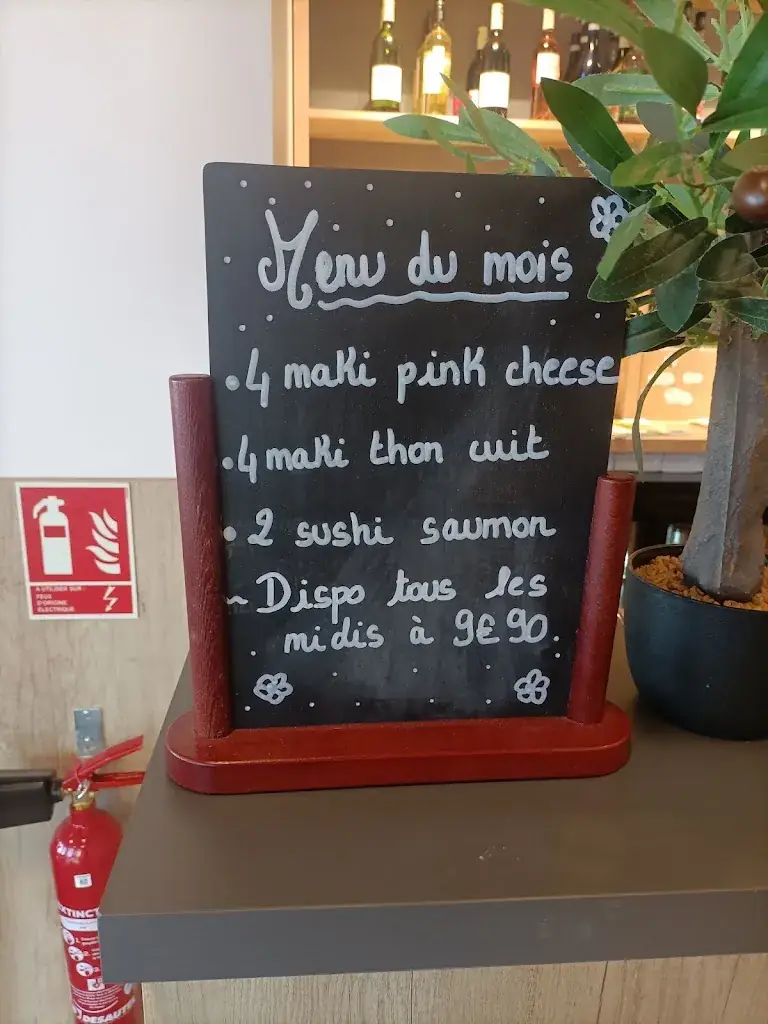 Menu du mois
• 4 maki pink cheese
• 4 maki thon cuit
• 2 sushi saumon
~ Dispo tous les
midis à 9€90.
A UTILISER SUR
FEUX
D'ORIGINE
ELECTRIQUE
EXTINCT
DESAUTEL